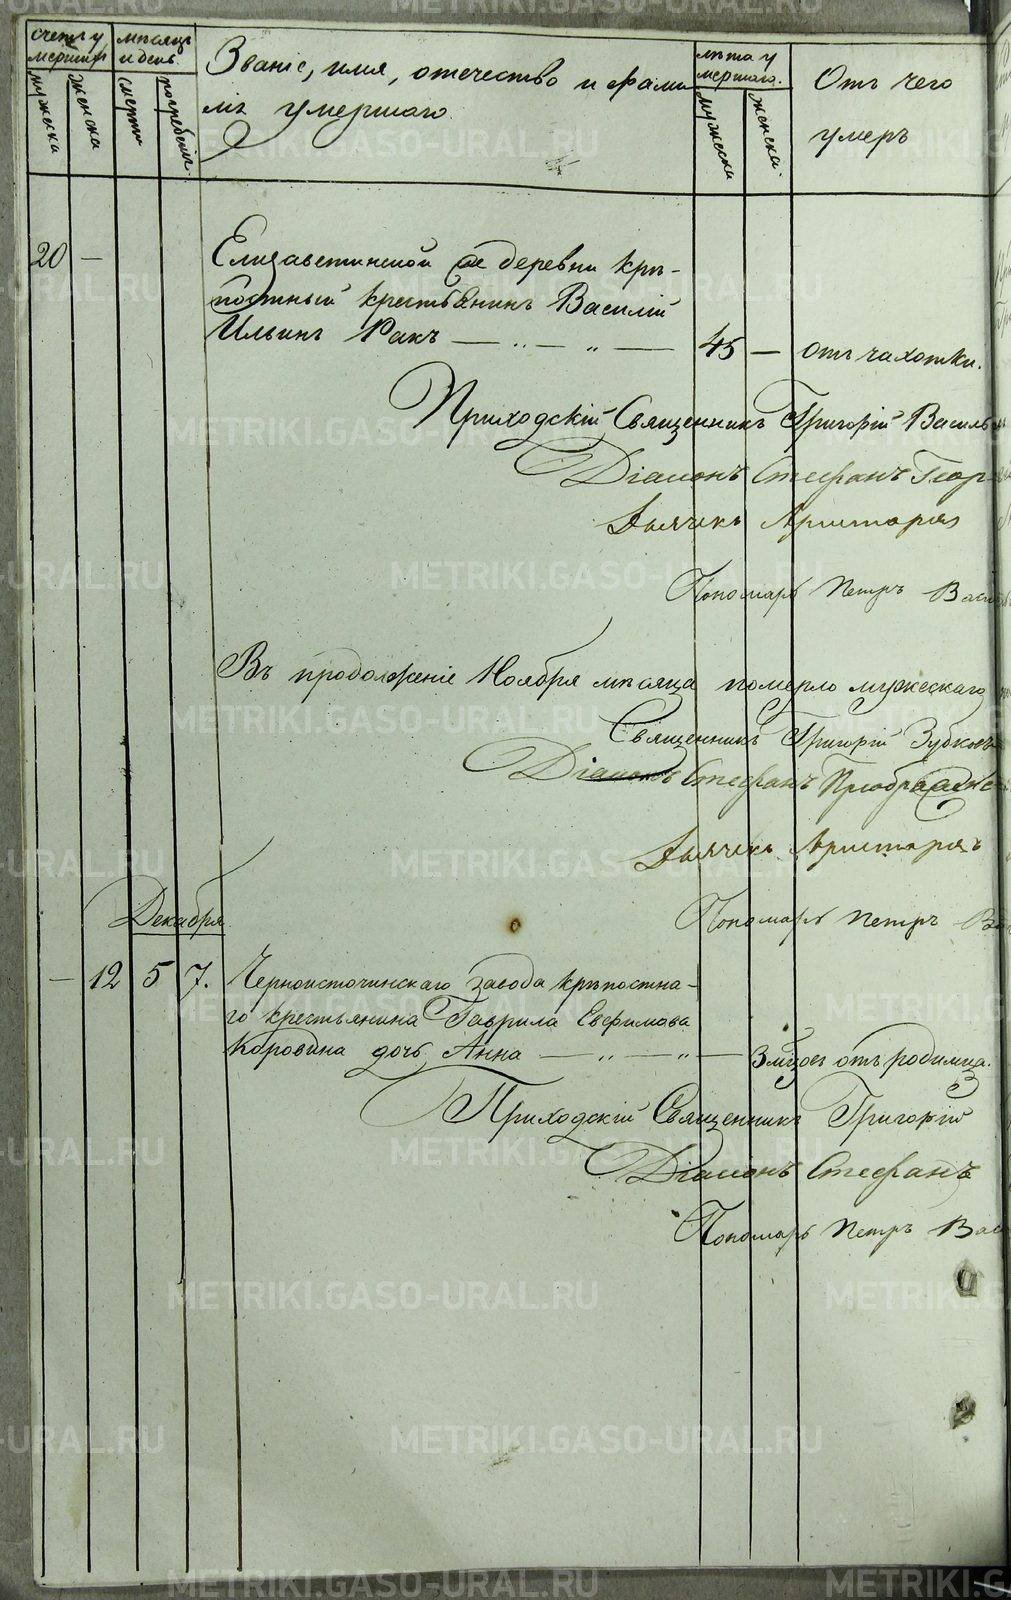 счетъ у
мершихъ
мужеска
женска
мѣсяцъ
и день
смерти
погребенія.
Званіе, имя, отечество и фами
лія умершаго.
лѣта у
мершаго.
мужеска
женска.
Отъ чего
умеръ
20 —
Елизаветинской деревни крѣ-
постный крестьянинъ Василій
Ильинъ Ракъ — „ — „ — 45 — отъ чахотки.
Приходскій Священникъ Григорій Василь
Діаконъ Стефанъ Геор
Дьячекъ Аристархъ
Пономарь Петръ Васи
Въ продолженіе Ноября мѣсяца померло мужескаго
Священникъ Григорій Зубковъ
Діаконъ Стефанъ Преображе
Дьячекъ Аристархъ
Пономарь Петръ Ва
Декабря.
— 12 5 7. Черноисточинскаго завода крѣпостна-
го крестьянина Гаврила Евфимова
Коровина дочь Анна — „ — „ — 3 мѣсов отъ родимца.
Приходскій Священникъ Григорій
Діаконъ Стефанъ
Пономарь Петръ Вас
METRIKI.GASO-URAL.RU